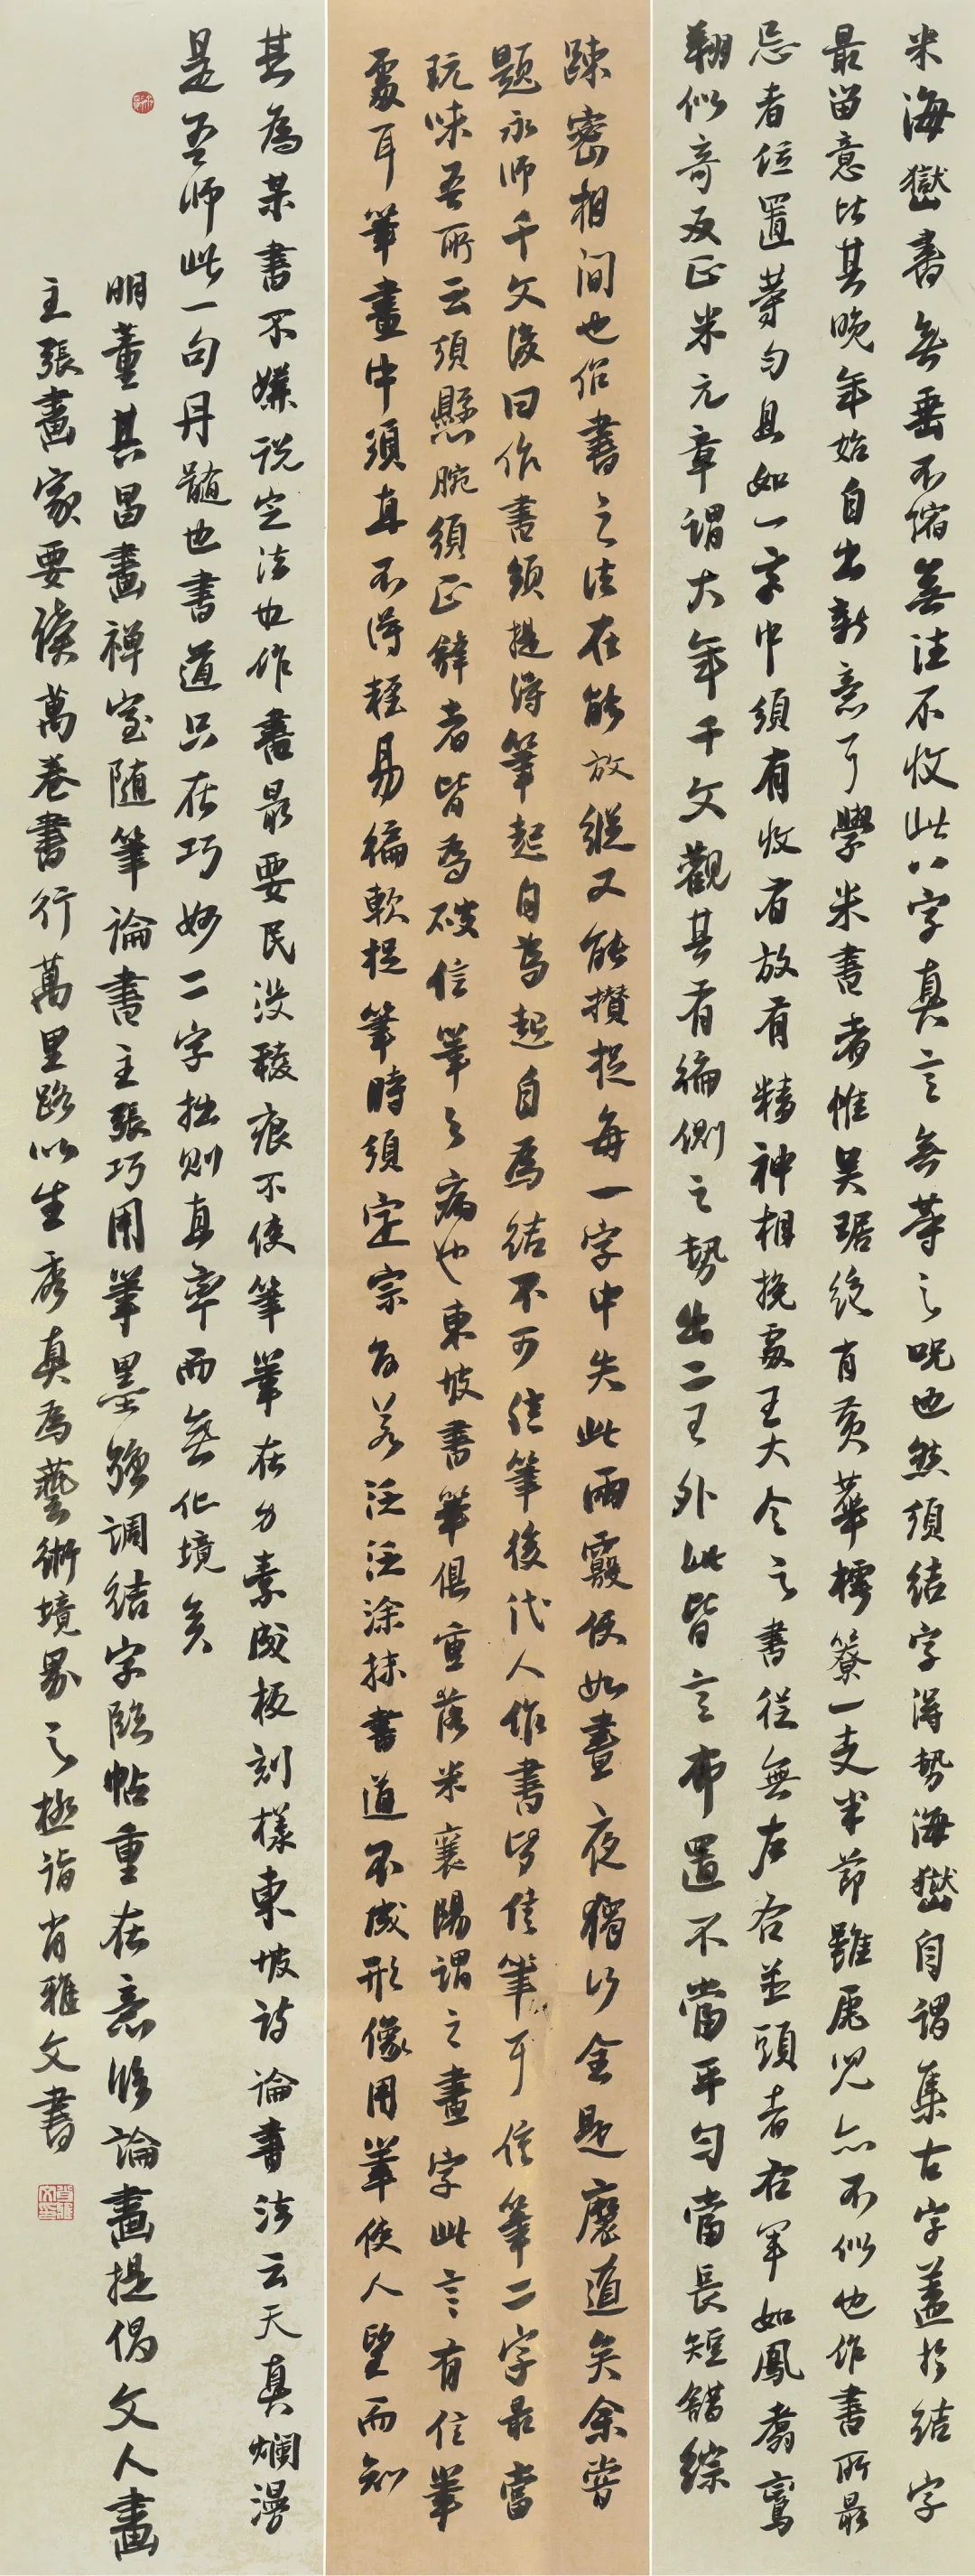 米海嶽書無垂不縮無往不收此八字真言無等之呪也然須結字得勢海嶽自謂集古字蓋於結字
最留意比其晚年始自出新意耳學米書者惟吳琚絕肖黃華樗寮一支半節雖虎兒亦不似也作書所最
忌者位置等勻且如一字中須有收有放有精神相挽處王大令之書從無左右並頭者右軍如鳳翥鸞
翔似奇反正米元章謂大年千文觀其有偏側之勢出二王外此皆言布置不當平勻當長短錯綜
疎密相間也作書之法在能放縱又能攢捉每一字中失此兩竅便如晝夜獨行全是魔道矣余嘗
題永師千文後曰作書須提得筆起自為起自為結不可信筆後代人作書皆信筆耳信筆二字最當
玩味吾所云須懸腕須正鋒者皆為破信筆之病也東坡書筆俱重落米襄陽謂之畫字此言有信筆
處耳筆畫中須直不得輕易偏軟捉筆時須定宗旨若泛泛涂抹書道不成形像用筆使人望而知
其為某書不嫌說定法也作書最要泯沒稜痕不使筆筆在紙素成板刻樣東坡詩論書法云天真爛漫
是吾師此一句丹髓也書道只在巧妙二字拙則直率而無化境矣
明董其昌畫禪室隨筆論書主張巧用筆墨強調結字臨帖重在意臨論畫提倡文人畫
主張畫家要讀萬卷書行萬里路以生秀真為藝術境界之極詣肖雅文書